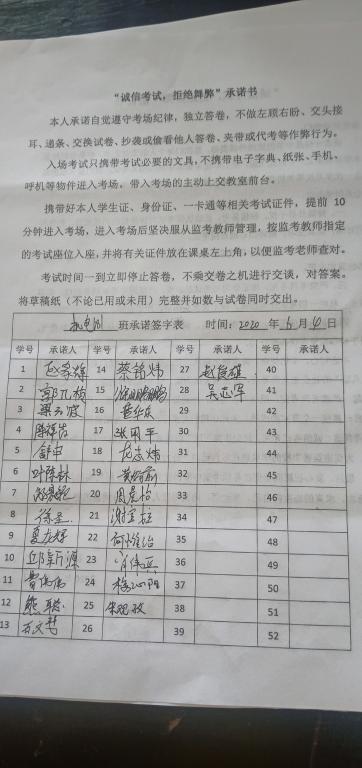 “诚信考试，拒绝舞弊”承诺书
本人承诺自觉遵守考场纪律，独立答卷，不做左顾右盼、交头接
耳、递条、交换试卷、抄袭或偷看他人答卷、夹带或代考等作弊行为。
入场考试只携带考试必要的文具，不携带电子字典、纸张、手机、
呼机等物件进入考场。带入考场的主动上交教室前台。
携带好本人学生证、身份证、一卡通等相关考试证件，提前 10
分钟进入考场，进入考场后坚决服从监考教师管理，按监考教师指定
的考试座位入座，并将有关证件放在课桌左上角，以便监考老师查对。
考试时间一到立即停止答卷，不乘交卷之机进行交谈，对答案。
将草稿纸（不论已用或未用）完整并如数与试卷同时交出。
班承诺签字表 时间：2020 年 6 月 4 日
学号 承诺人 学号 承诺人 学号 承诺人 学号 承诺人
1 14 蔡铭炜 27 赵俊雄 40
2 15 28 吴志军 41
3 16 29 42
4 陈祥吉 17 张周平 30 43
5 舒申 18 龙志炜 31 44
6 叶陈林 19 32 45
7 20 周景怡 33 46
8 徐圣 21 谢宝社 34 47
9 夏龙辉 22 何烽治 35 48
10 邱新源 23 肖伟兵 36 49
11 曹伟伟 24 杨沁阳 37 50
12 熊聪 25 朱砚政 38 51
13 万文科 26 39 52